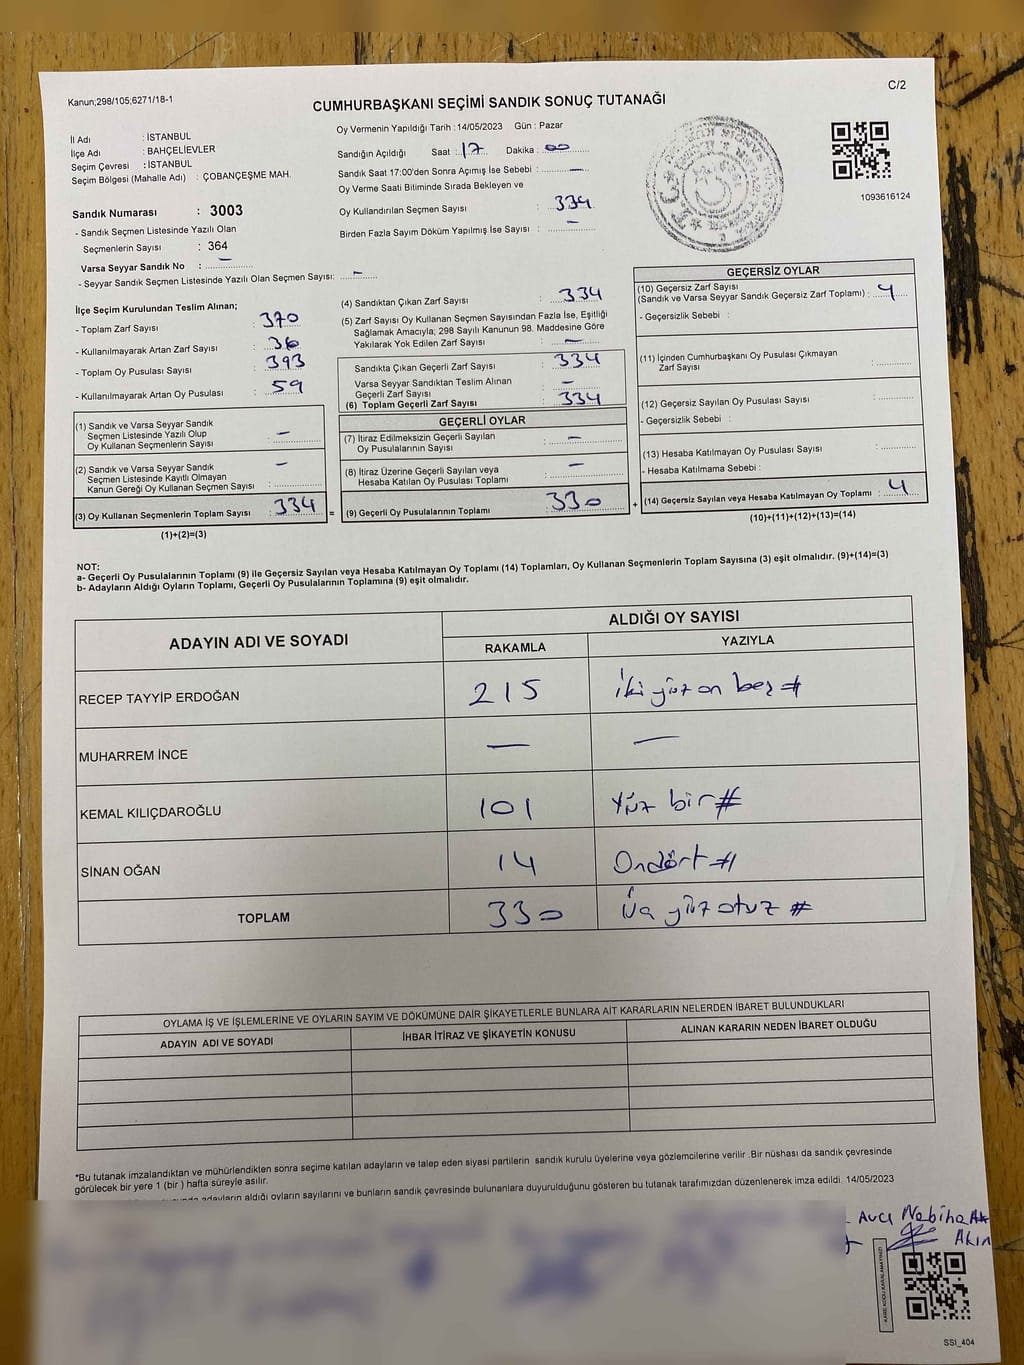 Kanun;298/105;6271/18-1
C/2
CUMHURBAŞKANI SEÇİMİ SANDIK SONUÇ TUTANAĞI
İl Adı : İSTANBUL
İlçe Adı : BAHÇELİEVLER
Seçim Çevresi : İSTANBUL
Seçim Bölgesi (Mahalle Adı) : ÇOBANÇEŞME MAH.
Sandık Numarası : 3003
- Sandık Seçmen Listesinde Yazılı Olan
Seçmenlerin Sayısı : 364
Varsa Seyyar Sandık No : -
- Seyyar Sandık Seçmen Listesinde Yazılı Olan Seçmen Sayısı: -
Oy Vermenin Yapıldığı Tarih : 14/05/2023 Gün : Pazar
Sandığın Açıldığı Saat : 17 Dakika : 00
Sandık Saat 17:00'den Sonra Açımış İse Sebebi : -
Oy Verme Saati Bitiminde Sırada Bekleyen ve
Oy Kullandırılan Seçmen Sayısı : 334
Birden Fazla Sayım Döküm Yapılmış İse Sayısı : -
1093616124
İlçe Seçim Kurulundan Teslim Alınan;
- Toplam Zarf Sayısı : 370
- Kullanılmayarak Artan Zarf Sayısı : 36
- Toplam Oy Pusulası Sayısı : 393
- Kullanılmayarak Artan Oy Pusulası : 59
(1) Sandık ve Varsa Seyyar Sandık
Seçmen Listesinde Yazılı Olup
Oy Kullanan Seçmenlerin Sayısı : -
(2) Sandık ve Varsa Seyyar Sandık
Seçmen Listesinde Kayıtlı Olmayan
Kanun Gereği Oy Kullanan Seçmen Sayısı : -
(3) Oy Kullanan Seçmenlerin Toplam Sayısı : 334
(1)+(2)=(3)
=
(4) Sandıktan Çıkan Zarf Sayısı : 334
(5) Zarf Sayısı Oy Kullanan Seçmen Sayısından Fazla İse, Eşitliği
Sağlamak Amacıyla; 298 Sayılı Kanunun 98. Maddesine Göre
Yakılarak Yok Edilen Zarf Sayısı : -
Sandıkta Çıkan Geçerli Zarf Sayısı : 334
Varsa Seyyar Sandıktan Teslim Alınan
Geçerli Zarf Sayısı : -
(6) Toplam Geçerli Zarf Sayısı : 334
GEÇERLİ OYLAR
(7) İtiraz Edilmeksizin Geçerli Sayılan
Oy Pusulalarının Sayısı : -
(8) İtiraz Üzerine Geçerli Sayılan veya
Hesaba Katılan Oy Pusulası Toplamı : -
(9) Geçerli Oy Pusulalarının Toplamı : 330
+
GEÇERSİZ OYLAR
(10) Geçersiz Zarf Sayısı
(Sandık ve Varsa Seyyar Sandık Geçersiz Zarf Toplamı) : 4
- Geçersizlik Sebebi :
(11) İçinden Cumhurbaşkanı Oy Pusulası Çıkmayan
Zarf Sayısı :
(12) Geçersiz Sayılan Oy Pusulası Sayısı :
- Geçersizlik Sebebi :
(13) Hesaba Katılmayan Oy Pusulası Sayısı :
- Hesaba Katılmama Sebebi :
(14) Geçersiz Sayılan veya Hesaba Katılmayan Oy Toplamı : 4
(10)+(11)+(12)+(13)=(14)
NOT:
a- Geçerli Oy Pusulalarının Toplamı (9) ile Geçersiz Sayılan veya Hesaba Katılmayan Oy Toplamı (14) Toplamları, Oy Kullanan Seçmenlerin Toplam Sayısına (3) eşit olmalıdır. (9)+(14)=(3)
b- Adayların Aldığı Oyların Toplamı, Geçerli Oy Pusulalarının Toplamına (9) eşit olmalıdır.
ADAYIN ADI VE SOYADI
ALDIĞI OY SAYISI
RAKAMLA YAZIYLA
RECEP TAYYİP ERDOĞAN 215 iki yüz on beş #
MUHARREM İNCE - -
KEMAL KILIÇDAROĞLU 101 Yüz bir #
SİNAN OĞAN 14 Ondört #
TOPLAM 330 yüz otuz #
OYLAMA İŞ VE İŞLEMLERİNE VE OYLARIN SAYIM VE DÖKÜMÜNE DAİR ŞİKAYETLERLE BUNLARA AİT KARARLARIN NELERDEN İBARET BULUNDUKLARI
ADAYIN ADI VE SOYADI İHBAR İTİRAZ VE ŞİKAYETİN KONUSU ALINAN KARARIN NEDEN İBARET OLDUĞU
*Bu tutanak imzalandıktan ve mühürlendikten sonra seçime katılan adayların ve talep eden siyasi partilerin sandık kurulu üyelerine veya gözlemcilerine verilir .Bir nüshası da sandık çevresinde
görülecek bir yere 1 (bir ) hafta süreyle asılır.
adayların aldığı oyların sayılarını ve bunların sandık çevresinde bulunanlara duyurulduğunu gösteren bu tutanak tarafımızdan düzenlenerek imza edildi. 14/05/2023
Avcı Nabiha Ak
Akın
SSI_404